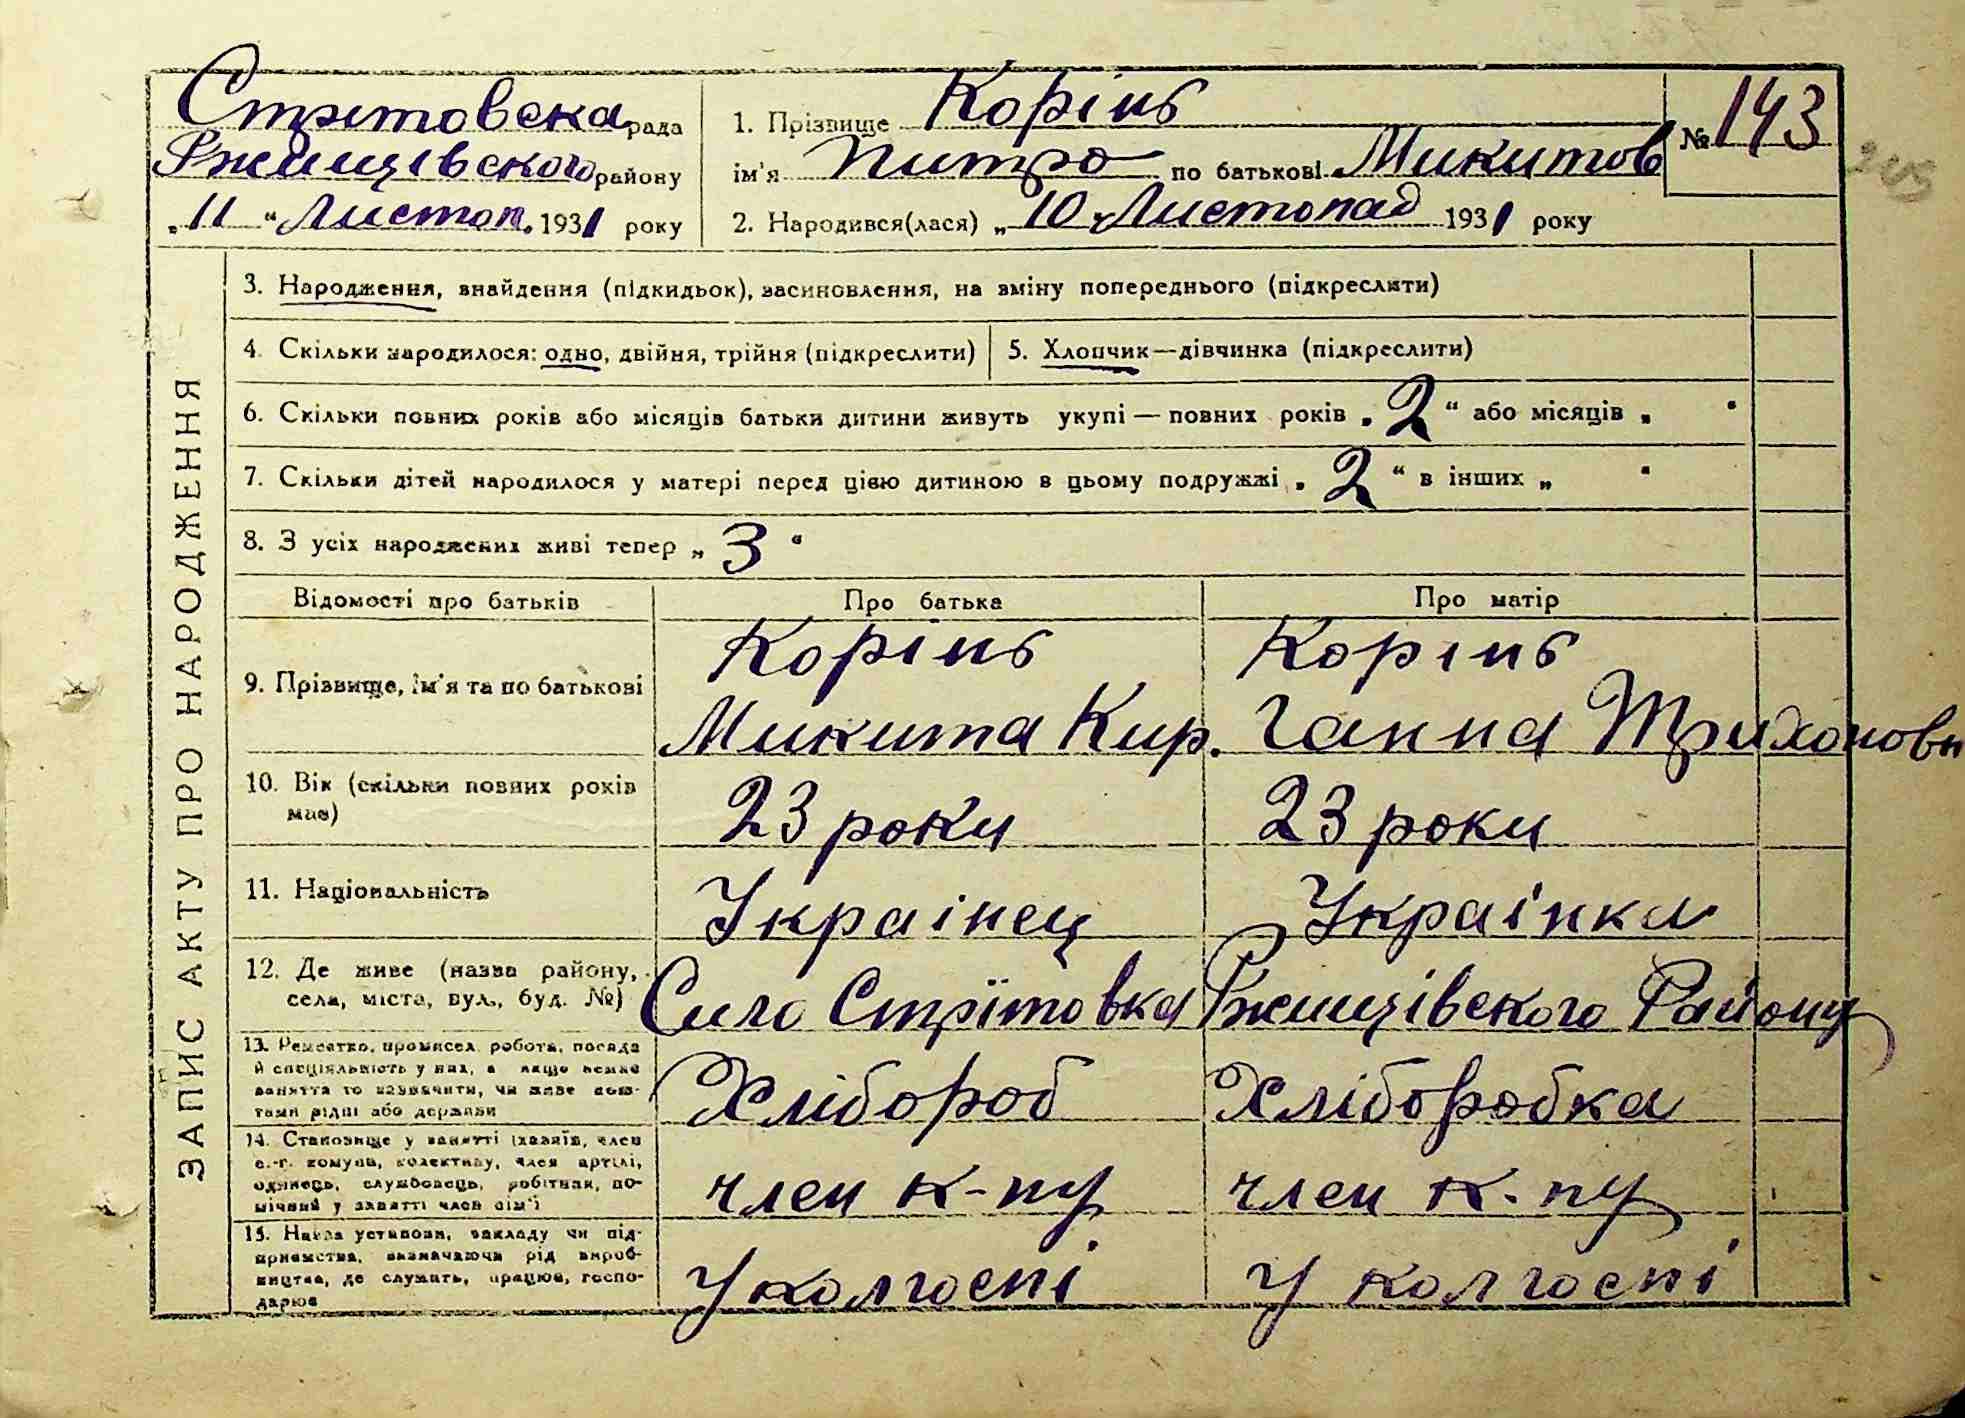 Стрітовска рада
Ржищівского району
„11“ Листоп. 1931 року
1. Прізвище Корінь
ім'я Питро по батькові Микитов
2. Народився(лася) „10 Листопад 1931 року
№ 143
ЗАПИС АКТУ ПРО НАРОДЖЕННЯ
3. Народження, знайдення (підкидьок), засиновлення, на зміну попереднього (підкреслити)
4. Скільки народилося: одно, двійня, трійня (підкреслити)
5. Хлопчик—дівчинка (підкреслити)
6. Скільки повних років або місяців батьки дитини живуть укупі — повних років „2“ або місяців „ “
7. Скільки дітей народилося у матері перед цією дитиною в цьому подружжі „2“ в інших „ “
8. З усіх народжених живі тепер „3“
Відомості про батьків Про батька Про матір
9. Прізвище, ім'я та по батькові
Корінь
Микита Кир.
Корінь
Ганна Трихоновн
10. Вік (скільки повних років
має)
23 роки
23 роки
11. Національність
Украінец
Украінка
12. Де живе (назва району,
села, міста, вул., буд. №)
Сило Стрїтовка Ржищівского Району
13. Ремество, промисел, робота, посада
й спеціяльність у них, а якщо немає
заняття то зазначити, чи живе кош-
тами рідні або держави
Хлібороб
Хліборобка
14. Становище у занятті (хазяїн, член
с.-г. комуни, колективу, член артілі,
одинець, службовець, робітник, по-
мічний у занятті член сім'ї
член к-пу
член к-пу
15. Назва установи, закладу чи під-
приємства, визначаючи рід вироб-
ництва, де служить, працює, госпо-
дарює
У колгоспі
У колгоспі